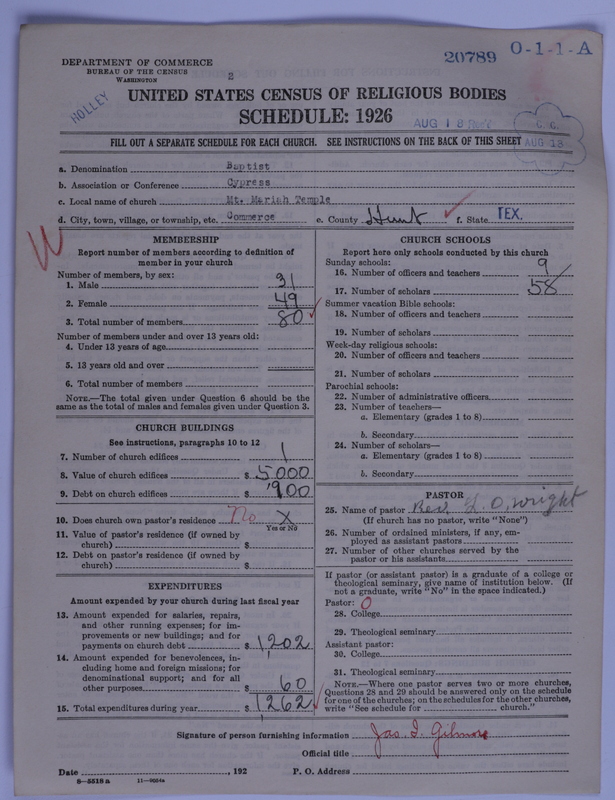 20789 O-1-1-A
DEPARTMENT OF COMMERCE
BUREAU OF THE CENSUS
WASHINGTON
2
HOLLEY
UNITED STATES CENSUS OF RELIGIOUS BODIES
SCHEDULE: 1926
AUG 18
C. C.
AUG 18
FILL OUT A SEPARATE SCHEDULE FOR EACH CHURCH. SEE INSTRUCTIONS ON THE BACK OF THIS SHEET
a. Denomination Baptist
b. Association or Conference Cypress
c. Local name of church Mt. Mariah Temple
d. City, town, village, or township, etc. Commerce e. County Hunt f. State TEX.
MEMBERSHIP
Report number of members according to definition of
member in your church
Number of members, by sex:
1. Male 31
2. Female 49
3. Total number of members 80
Number of members under and over 13 years old:
4. Under 13 years of age
5. 13 years old and over
6. Total number of members
NOTE.—The total given under Question 6 should be the
same as the total of males and females given under Question 3.
CHURCH BUILDINGS
See instructions, paragraphs 10 to 12
7. Number of church edifices 1
8. Value of church edifices $ 5000
9. Debt on church edifices $ 900
10. Does church own pastor's residence No X
Yes or No
11. Value of pastor's residence (if owned by
church) $
12. Debt on pastor's residence (if owned by
church) $
EXPENDITURES
Amount expended by your church during last fiscal year
13. Amount expended for salaries, repairs,
and other running expenses; for im-
provements or new buildings; and for
payments on church debt $ 1202
14. Amount expended for benevolences, in-
cluding home and foreign missions; for
denominational support; and for all
other purposes $ 60
15. Total expenditures during year $ 1262
CHURCH SCHOOLS
Report here only schools conducted by this church
Sunday schools:
16. Number of officers and teachers 9
17. Number of scholars 58
Summer vacation Bible schools:
18. Number of officers and teachers
19. Number of scholars
Week-day religious schools:
20. Number of officers and teachers
21. Number of scholars
Parochial schools:
22. Number of administrative officers
23. Number of teachers—
a. Elementary (grades 1 to 8)
b. Secondary
24. Number of scholars—
a. Elementary (grades 1 to 8)
b. Secondary
PASTOR
25. Name of pastor Rev. L. O. Wright
(If church has no pastor, write "None")
26. Number of ordained ministers, if any, em-
ployed as assistant pastors
27. Number of other churches served by the
pastor or his assistants
If pastor (or assistant pastor) is a graduate of a college or
theological seminary, give name of institution below. (If
not a graduate, write "No" in the space indicated.)
Pastor: 0
28. College
29. Theological seminary
Assistant pastor:
30. College
31. Theological seminary
NOTE.—Where one pastor serves two or more churches,
Questions 28 and 29 should be answered only on the schedule
for one of the churches; on the schedules for the other churches,
write "See schedule for church."
Signature of person furnishing information Jas. I. Gilmore
Official title
Date , 192 P. O. Address
8—5518 a 11—9604a